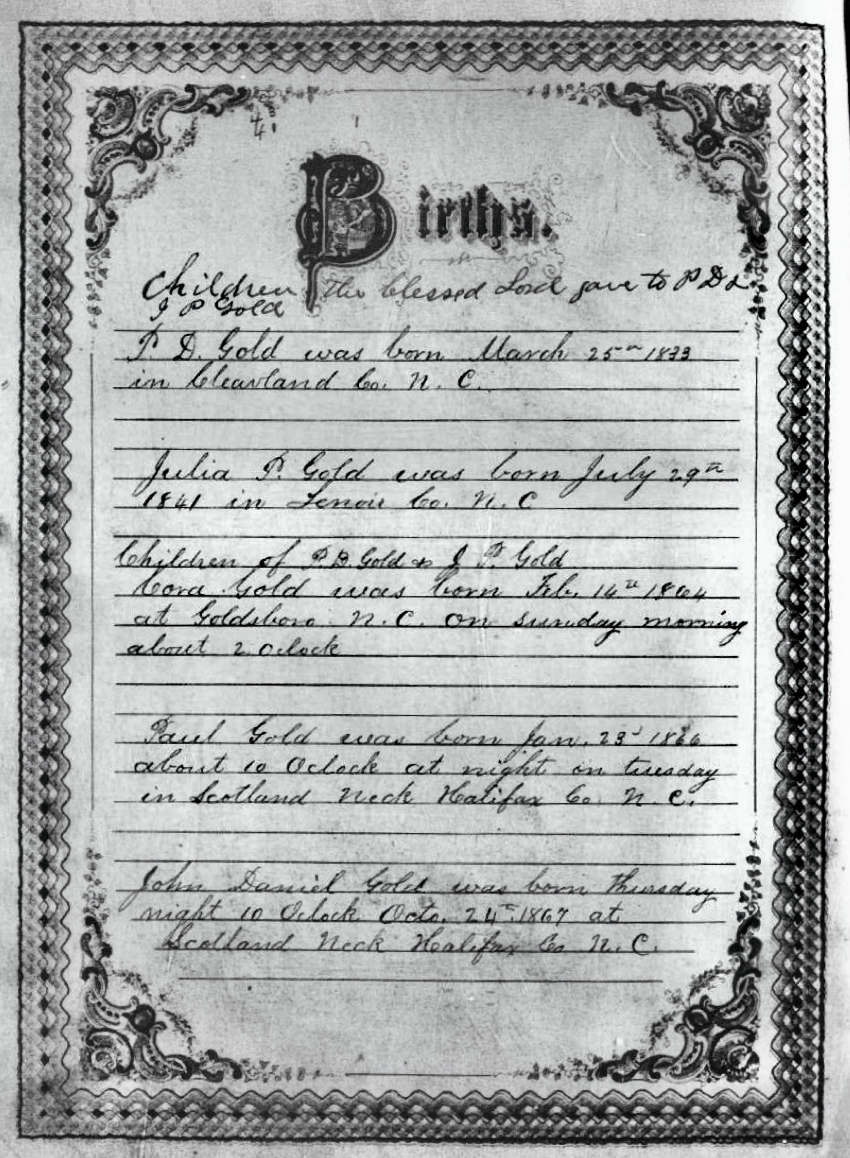 Births.
Children the blessed Lord gave to P D &
J P Gold
P. D. Gold was born March 25th 1833
in Cleavland Co. N. C.
Julia P. Gold was born July 29th
1841 in Lenoir Co. N. C
Children of P. D. Gold & J. P. Gold
Cora Gold was born Feb. 14th 1864
at Goldsboro. N. C. on sunday morning
about 2 Oclock
Paul Gold was born Jan. 23d 1866
about 10 Oclock at night on tuesday
in Scotland Neck Halifax Co N. C.
John Daniel Gold was born thursday
night 10 Oclock Octo. 24th 1867 at
Scotland Neck Halifax Co N. C.